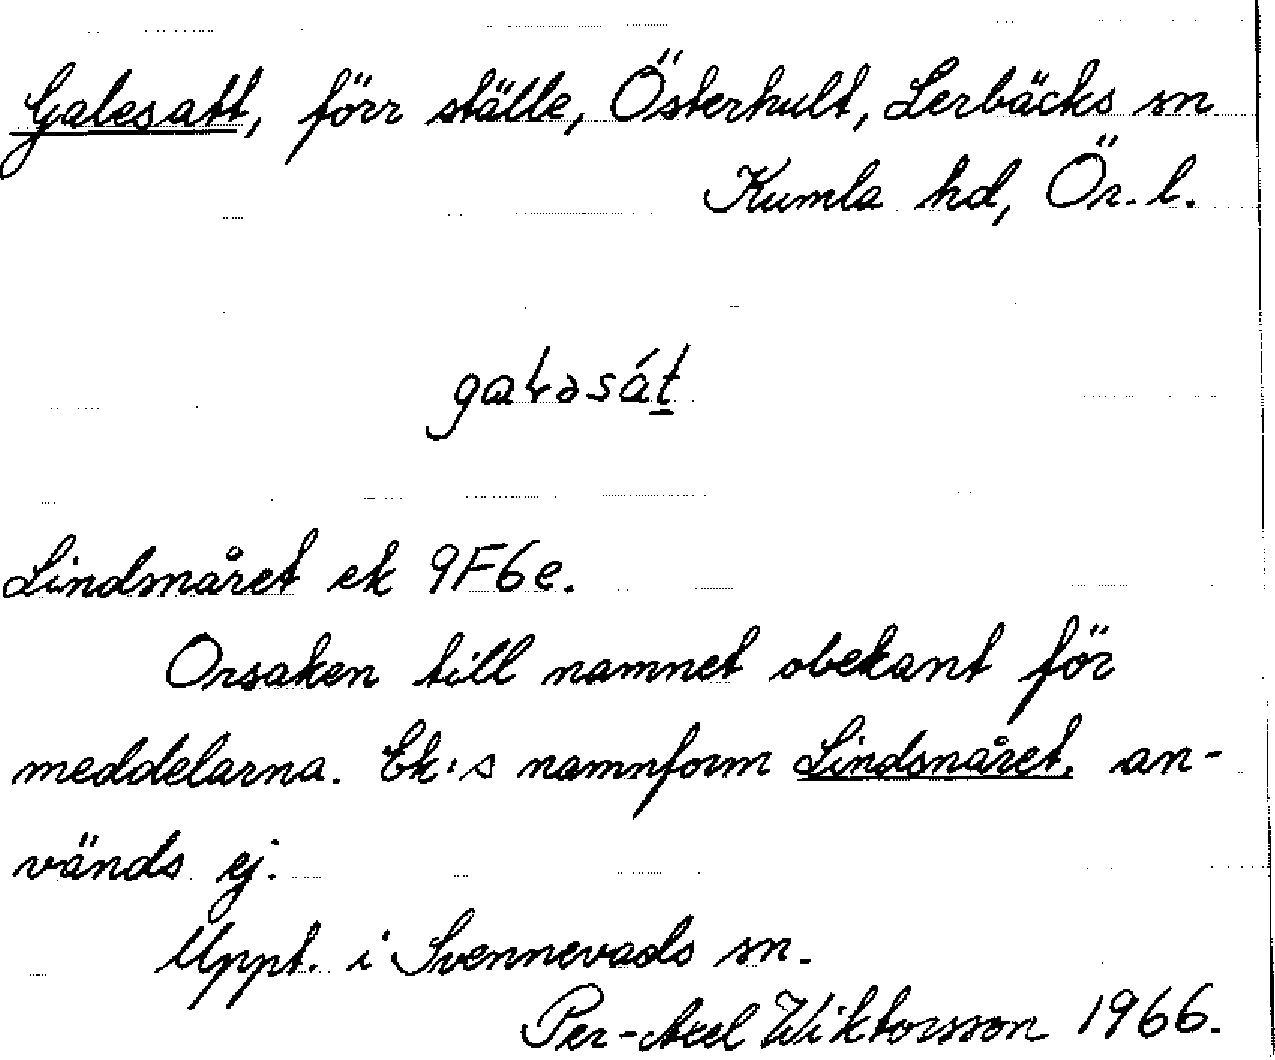 Galesatt, förr ställe, Österhult, Lerbäcks sn
Kumla hd, Ör. l.
gaLəsát
Lindsmåret ek 9F6e.
Orsaken till namnet obekant för
meddelarna. Ek:s namnform Lindsnåret. an-
vänds ej.
Uppt. i Svennevads sn.
Per-Axel Wiktorsson 1966.